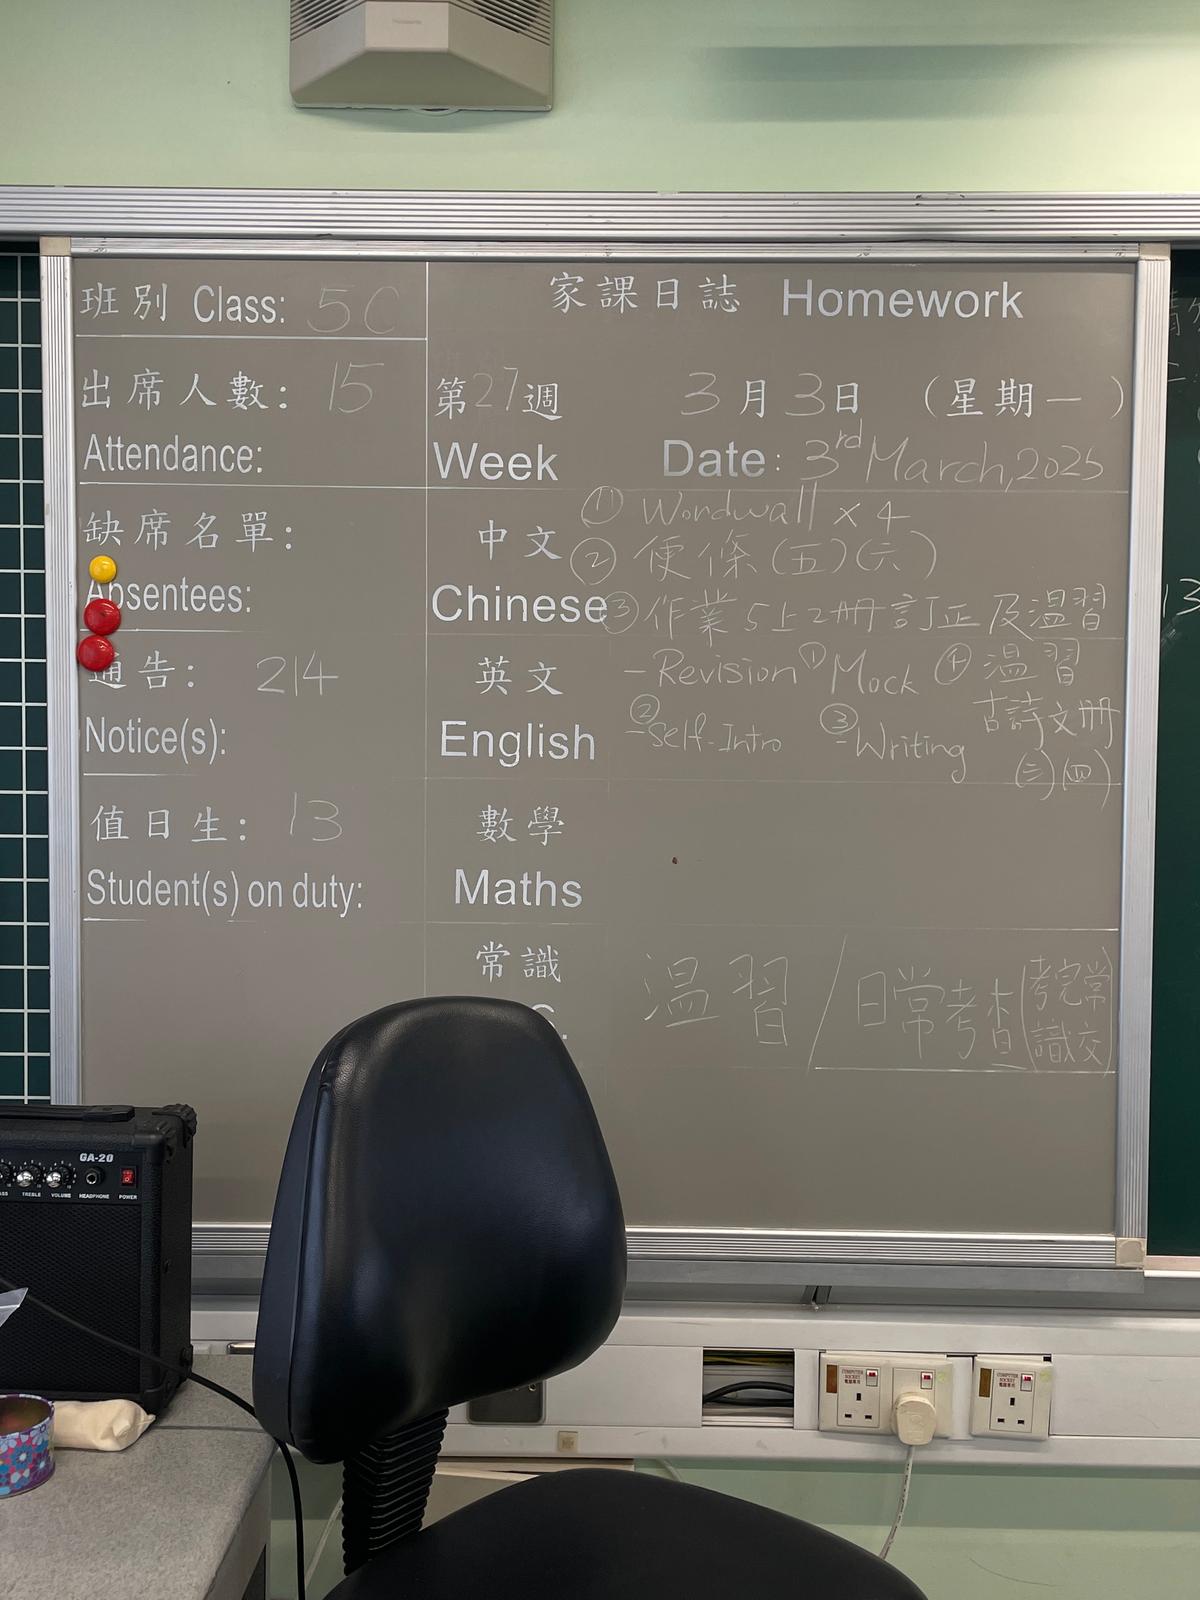 班別 Class: 5C
出席人數: 15
Attendance:
缺席名單:
Absentees:
通告: 214
Notice(s):
值日生: 13
Student(s) on duty:
家課日誌 Homework
第27週 3月3日 (星期一)
Week Date: 3rd March, 2025
中文 ① Wordwall × 4
② 便條(五)(六)
Chinese ③ 作業5上2冊訂正及溫習
④ 溫習
古詩文冊
(三)(四)
英文 - Revision ① Mock
English ② - Self-Intro ③ - Writing
數學
Maths
常識 溫習/日常考查(考完常
識交)
GA-20
TREBLE VOLUME HEADPHONE POWER
COMPUTER SOCKET
電腦專用
COMPUTER SOCKET
電腦專用